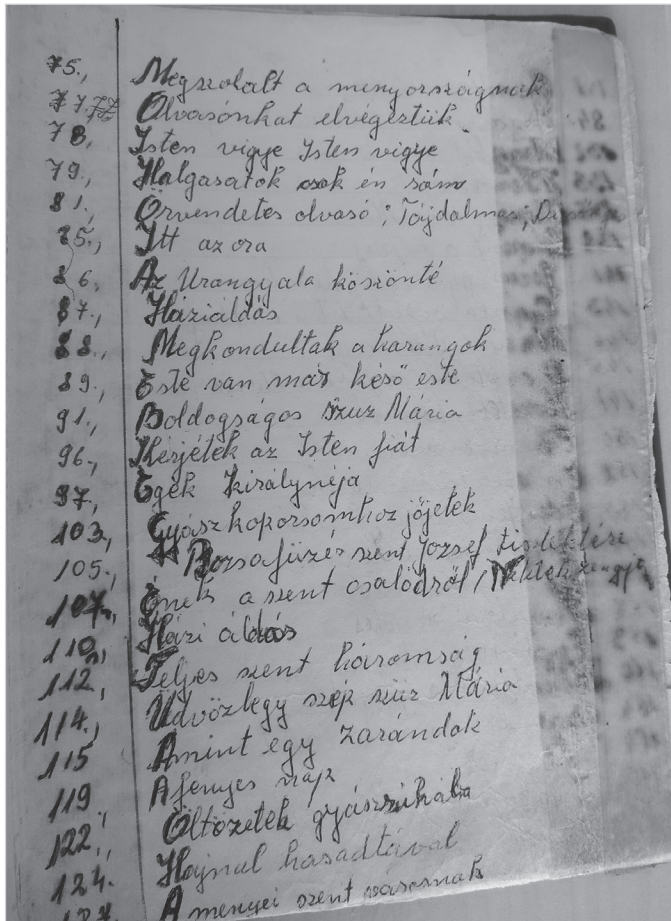 75., Megszolalt a menyországnak
77. Olvasónkat elvégeztük
78, Isten vigye Isten vigye
79., Halgasatok csak én rám
81., Örvendetes olvasó; Fájdalmas;
85., Itt az ora
86., Az Urangyala köszönté
87., Háziáldás
88., Megkondultak a harangok
89., Este van már késő este
91., Boldogságos szuz Mária
96., Kérjétek az Isten fiát
97, Egek királynéja
103, Gyászkoporsomhoz jöjetek
105., Rozsafüzér szent József tiszteletére
107., Ének a szent családról
110, Házi áldás
112, Teljes szent háromság
114., Üdvözlegy szép szüz Mária
115 Amint egy zarándok
119 A fenyes nap
122, Öltözetek gyászruhába
124. Hajnal hasadtával
127. A menyei szent városnak